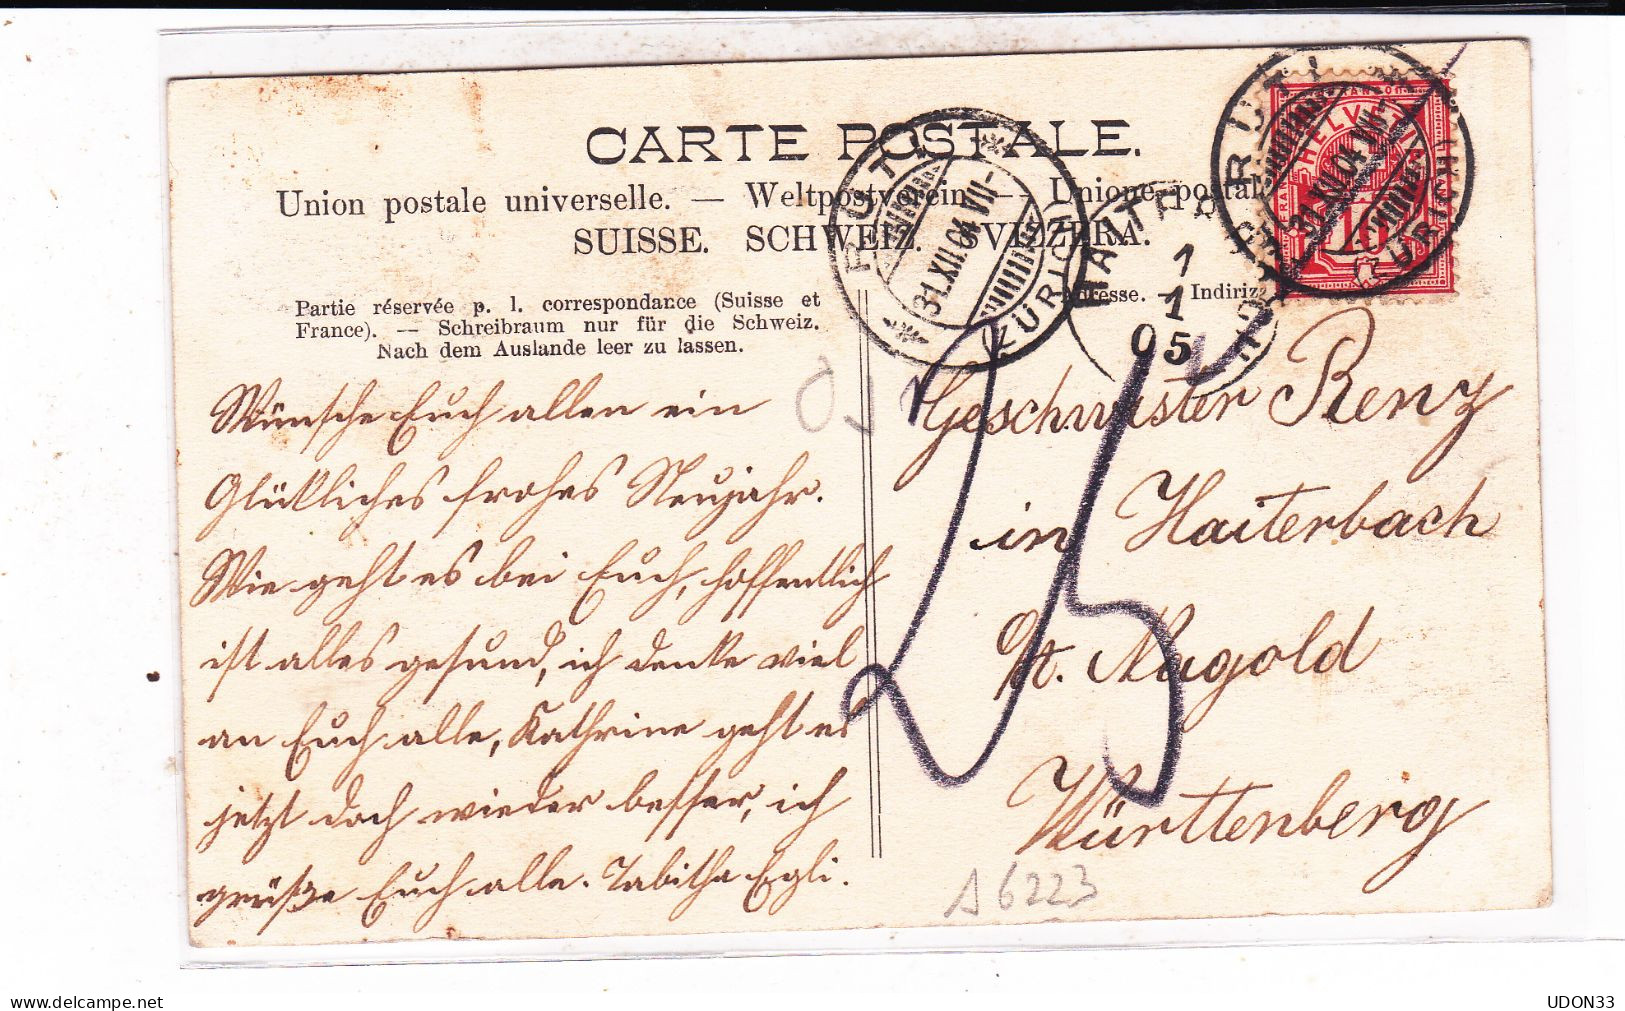 CARTE POSTALE.
Union postale universelle. — Weltpostverein. — Unione postale
SUISSE. SCHWEIZ. SVIZZERA.
Partie réservée p. l. correspondance (Suisse et
France). — Schreibraum nur für die Schweiz.
Nach dem Auslande leer zu lassen.
Adresse. — Indirizz
RÜTI
31.XII.04 VII-
(ZÜRICH)
RÜTI
31.XII.04 VII-
(ZÜRICH)
HELVETIA
10
HAITE
1
1
05
25
Wünsche Euch allen ein
Glückliches frohes Neujahr.
Wie geht es bei Euch, hoffentlich
ist alles gesund, ich denke viel
an Euch alle, Kathrine geht es
jetzt doch wieder besser, ich
grüße Euch alle. Tabitha Egli.
Geschwister Renz
in Haiterbach
O/A. Nagold
Württenberg
A6223
UDON33